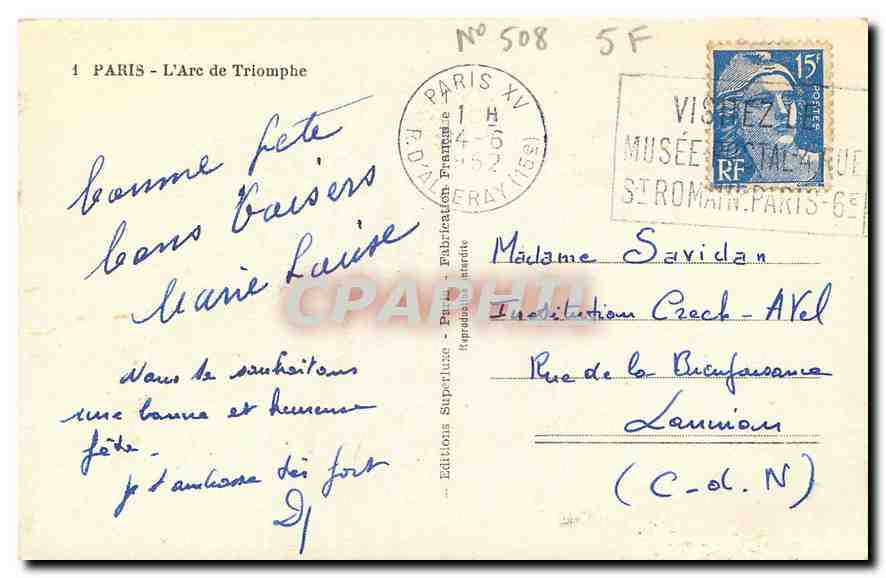 No 508 5F
1 PARIS - L'Arc de Triomphe
PARIS XV
1 H
4-6
1952
R. D'ALLERAY (15e)
15F
POSTES
RF
VISITEZ LE
MUSÉE POSTAL 4 RUE
ST ROMAIN. PARIS-6e
bonne fête
bons baisers
Marie Louise
Nous te souhaitons
une bonne et heureuse
fête.
je t'embrasse très fort
Editions Superluxe - Paris - Fabrication Française
Reproduction interdite
CPAPHIL
Madame Savidan
Institution Crech - Avel
Rue de la Bienfaisance
Lannion
(C-d.N)